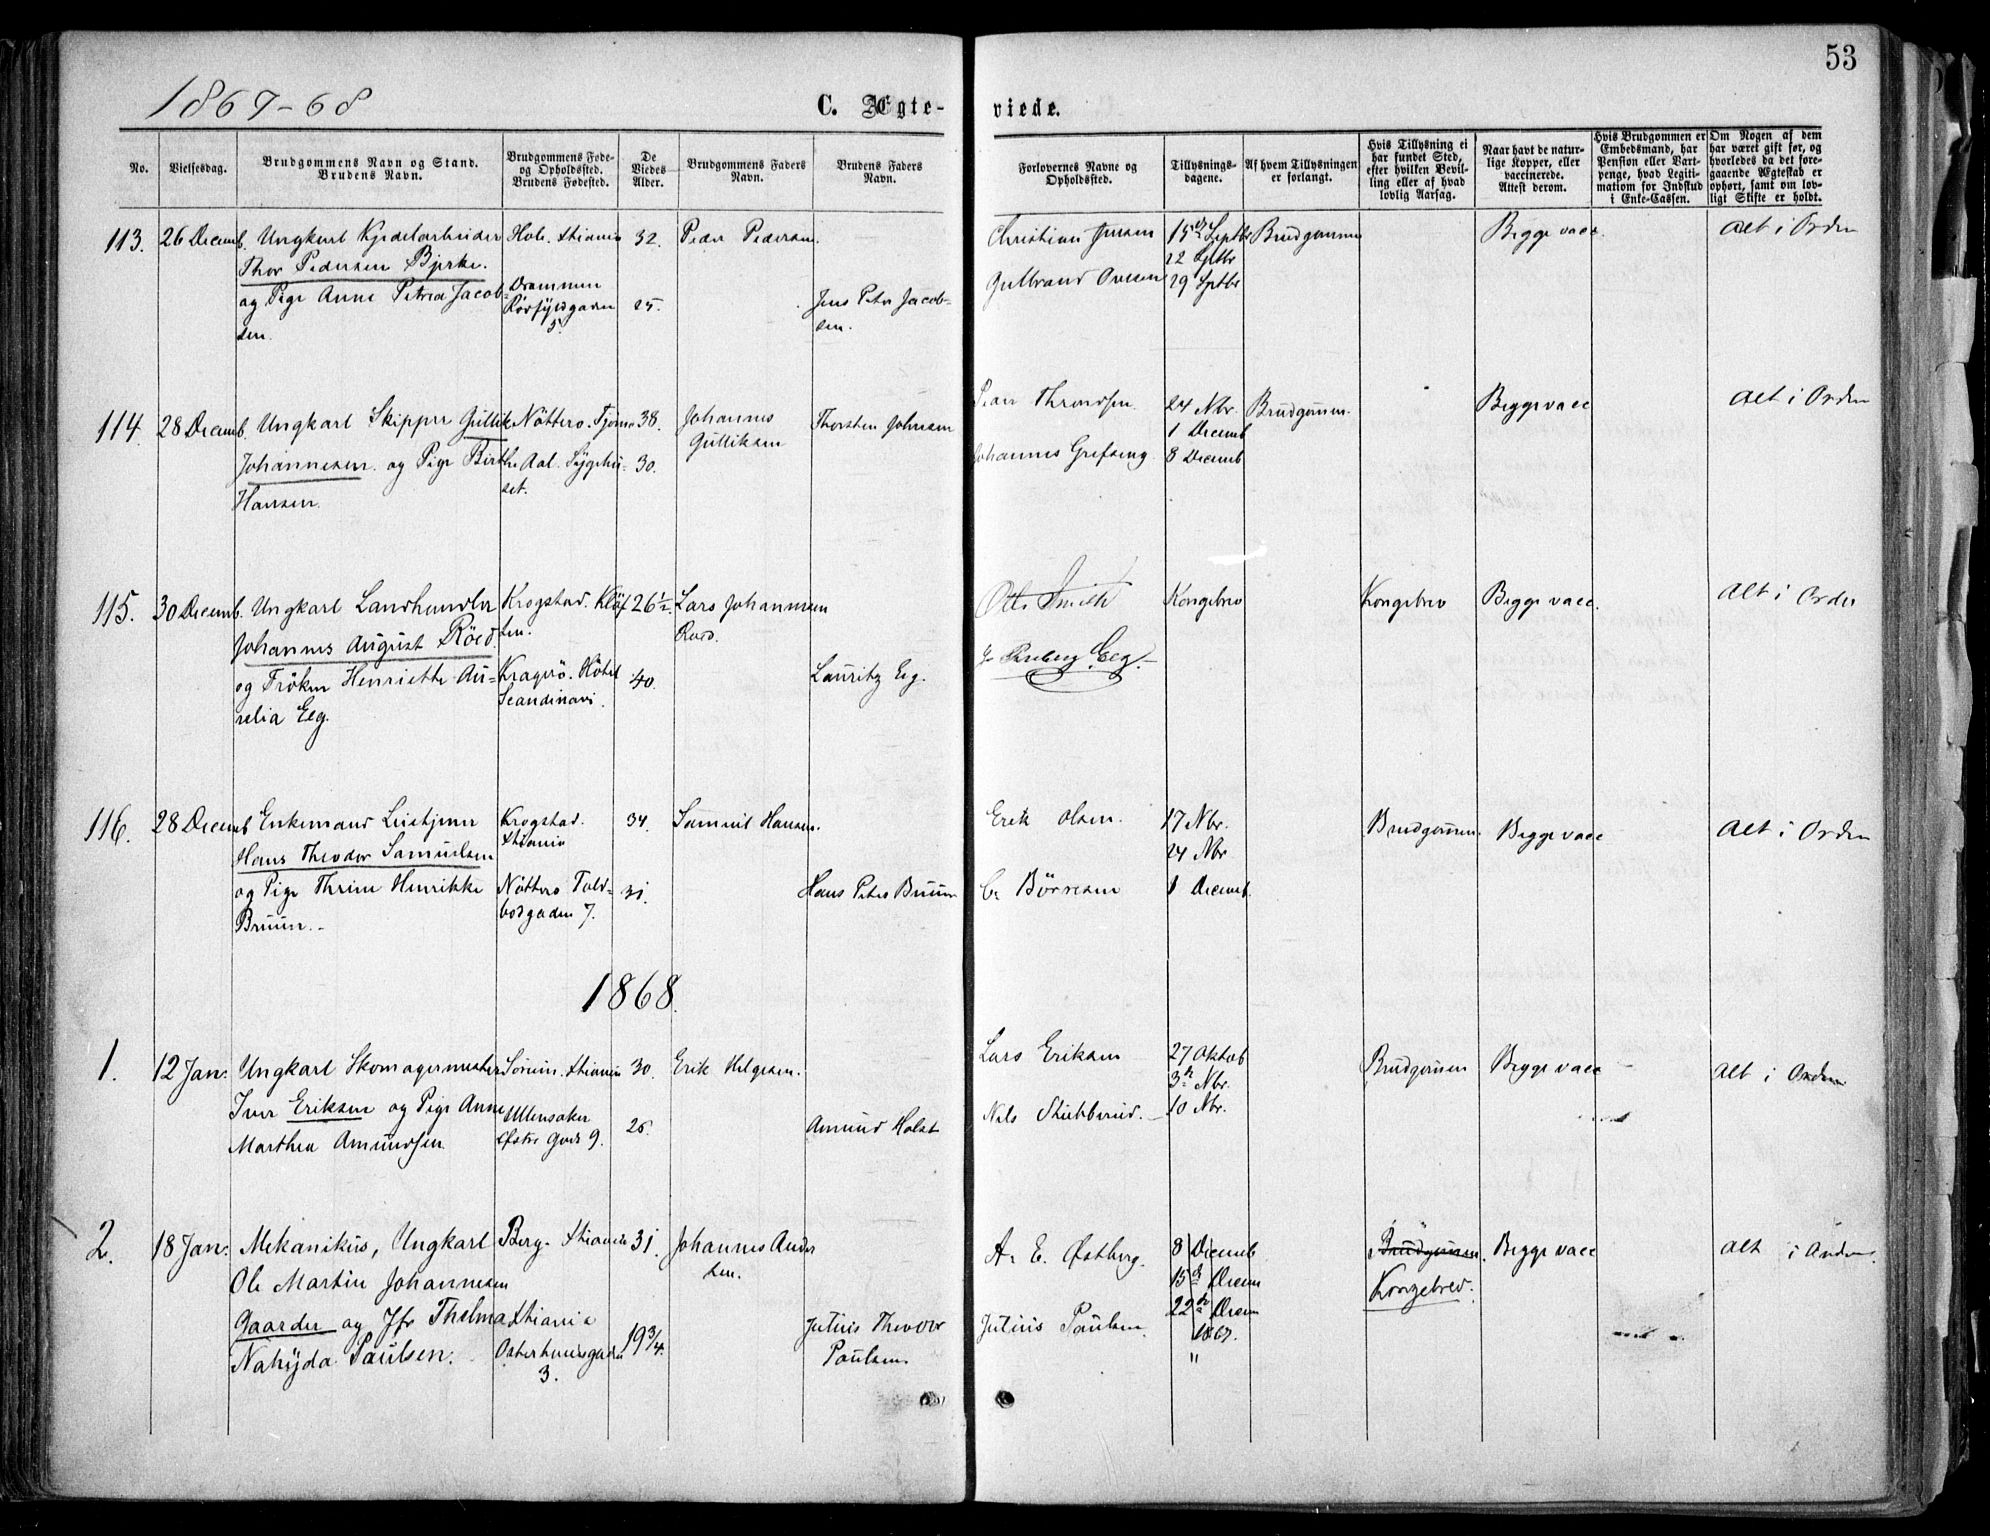 53
1867-68
C. Ægte-
viede.
No.
Vielsesdag.
Brudgommens Navn og Stand.
Brudens Navn.
Brudgommens Føde-
og Opholdssted.
Brudens Fødested.
De
Viedes
Alder.
Brudgommens Faders
Navn.
Brudens Faders
Navn.
Forlovernes Navne og
Opholdssted.
Tillysnings-
dagene.
Af hvem Tillysningen
er forlangt.
Hvis Tillysning ei
har fundet Sted,
efter hvilken Bevil-
ling eller af hvad
lovlig Aarsag.
Naar havt de natur-
lige Kopper, eller
vaccinerede.
Attest derom.
Hvis Brudgommen er
Embedsmand, har
Pension eller Vart-
penge, hvad Legiti-
mation for Indskud
i Enke-Cassen.
Om Nogen af dem
har været gift før, og
hvorledes da det fore-
gaaende Ægteskab er
ophørt, samt om lov-
ligt Skifte er holdt.
113.
26 Decemb.
Ungkarl Kjedelarbeider
Thor Pedersen Bjerke.
og Pige Anne Petrea Jacob-
sen.
Hole. Xtiania
Drammen
5.
32.
25.
Peder Pedersen.
Jens Peter Jacob-
sen.
Christian Jensen
Gulbrand Ovesen
15de Septbr
22 Septbr
29 Septbr
Brudgommen
Begge vacc.
Alt i Orden
114.
28 Decemb.
Ungkarl Skipper Gullik
Johannesen. og Pige Birthe
Hansen.
Nöttero. Tjømø
Aal. Sygehu-
set.
38.
30.
Johannes
Gulliksen
Thorsten Johnsen
Peder Throndsen.
Johannes Grefseng.
24 Nbr.
1 Decemb
8 Decemb
Brudgommen.
Begge vacc
Alt i Orden
115.
30 Decemb.
Ungkarl Landhandler
Johannes August Röed.
og Fröken Henriette Au-
relia Eeg.
Krogstad. Kløf-
ten.
Kragerö. Hôtel
Scandinavi.
26 1/2
40.
Lars Johannesen
Roed.
Lauritz Eeg.
Otto Smith
Eeg.
Kongebrev
Kongebrev
Begge vacc.
Alt i Orden
116.
28 Decemb
Enkemand Leistjener
Hans Theodor Samuelsen
og Pige Thrine Henrikke
Bruun.
Krogstad.
Xtiania
Nöttero Told-
bodgaden 7.
34.
31.
Samuel Hansen.
Hans Peter Bruun
Erik Olsen.
C. Börresen
17 Nbr.
24 Nbr
1 Decemb.
Brudgommen.
Begge vacc
Alt i Orden
1868.
1.
12 Jan.
Ungkarl Skomagermester
Iver Eriksen og Pige Anne
Marthea Amundsen.
Sörum. Xtiania
Ullensaker
Østre Gade 9.
30.
26.
Erik Helgesen.
Amund Holst
Lars Eriksen
Nils Stubberud.
27 Oktob
3de Nbr.
10 Nbr.
Brudgommen
Begge vacc
Alt i Orden
2.
18 Jan.
Mekanikus, Ungkarl
Ole Martin Johannesen
Gaarder og Jfr Thelma
Nahyda Paulsen.
Berg. Xtiania
Xtiania
Osterhausgaden
3.
31.
19 3/4.
Johannes Ander
sen.
Julius Theodor
Paulsen
A. E. Østberg.
Julius Paulsen.
8 Decemb
15de Decem
22de Decem
1867.
"
Brudgommen.
Kongebrev.
Begge vacc
Alt i Orden.